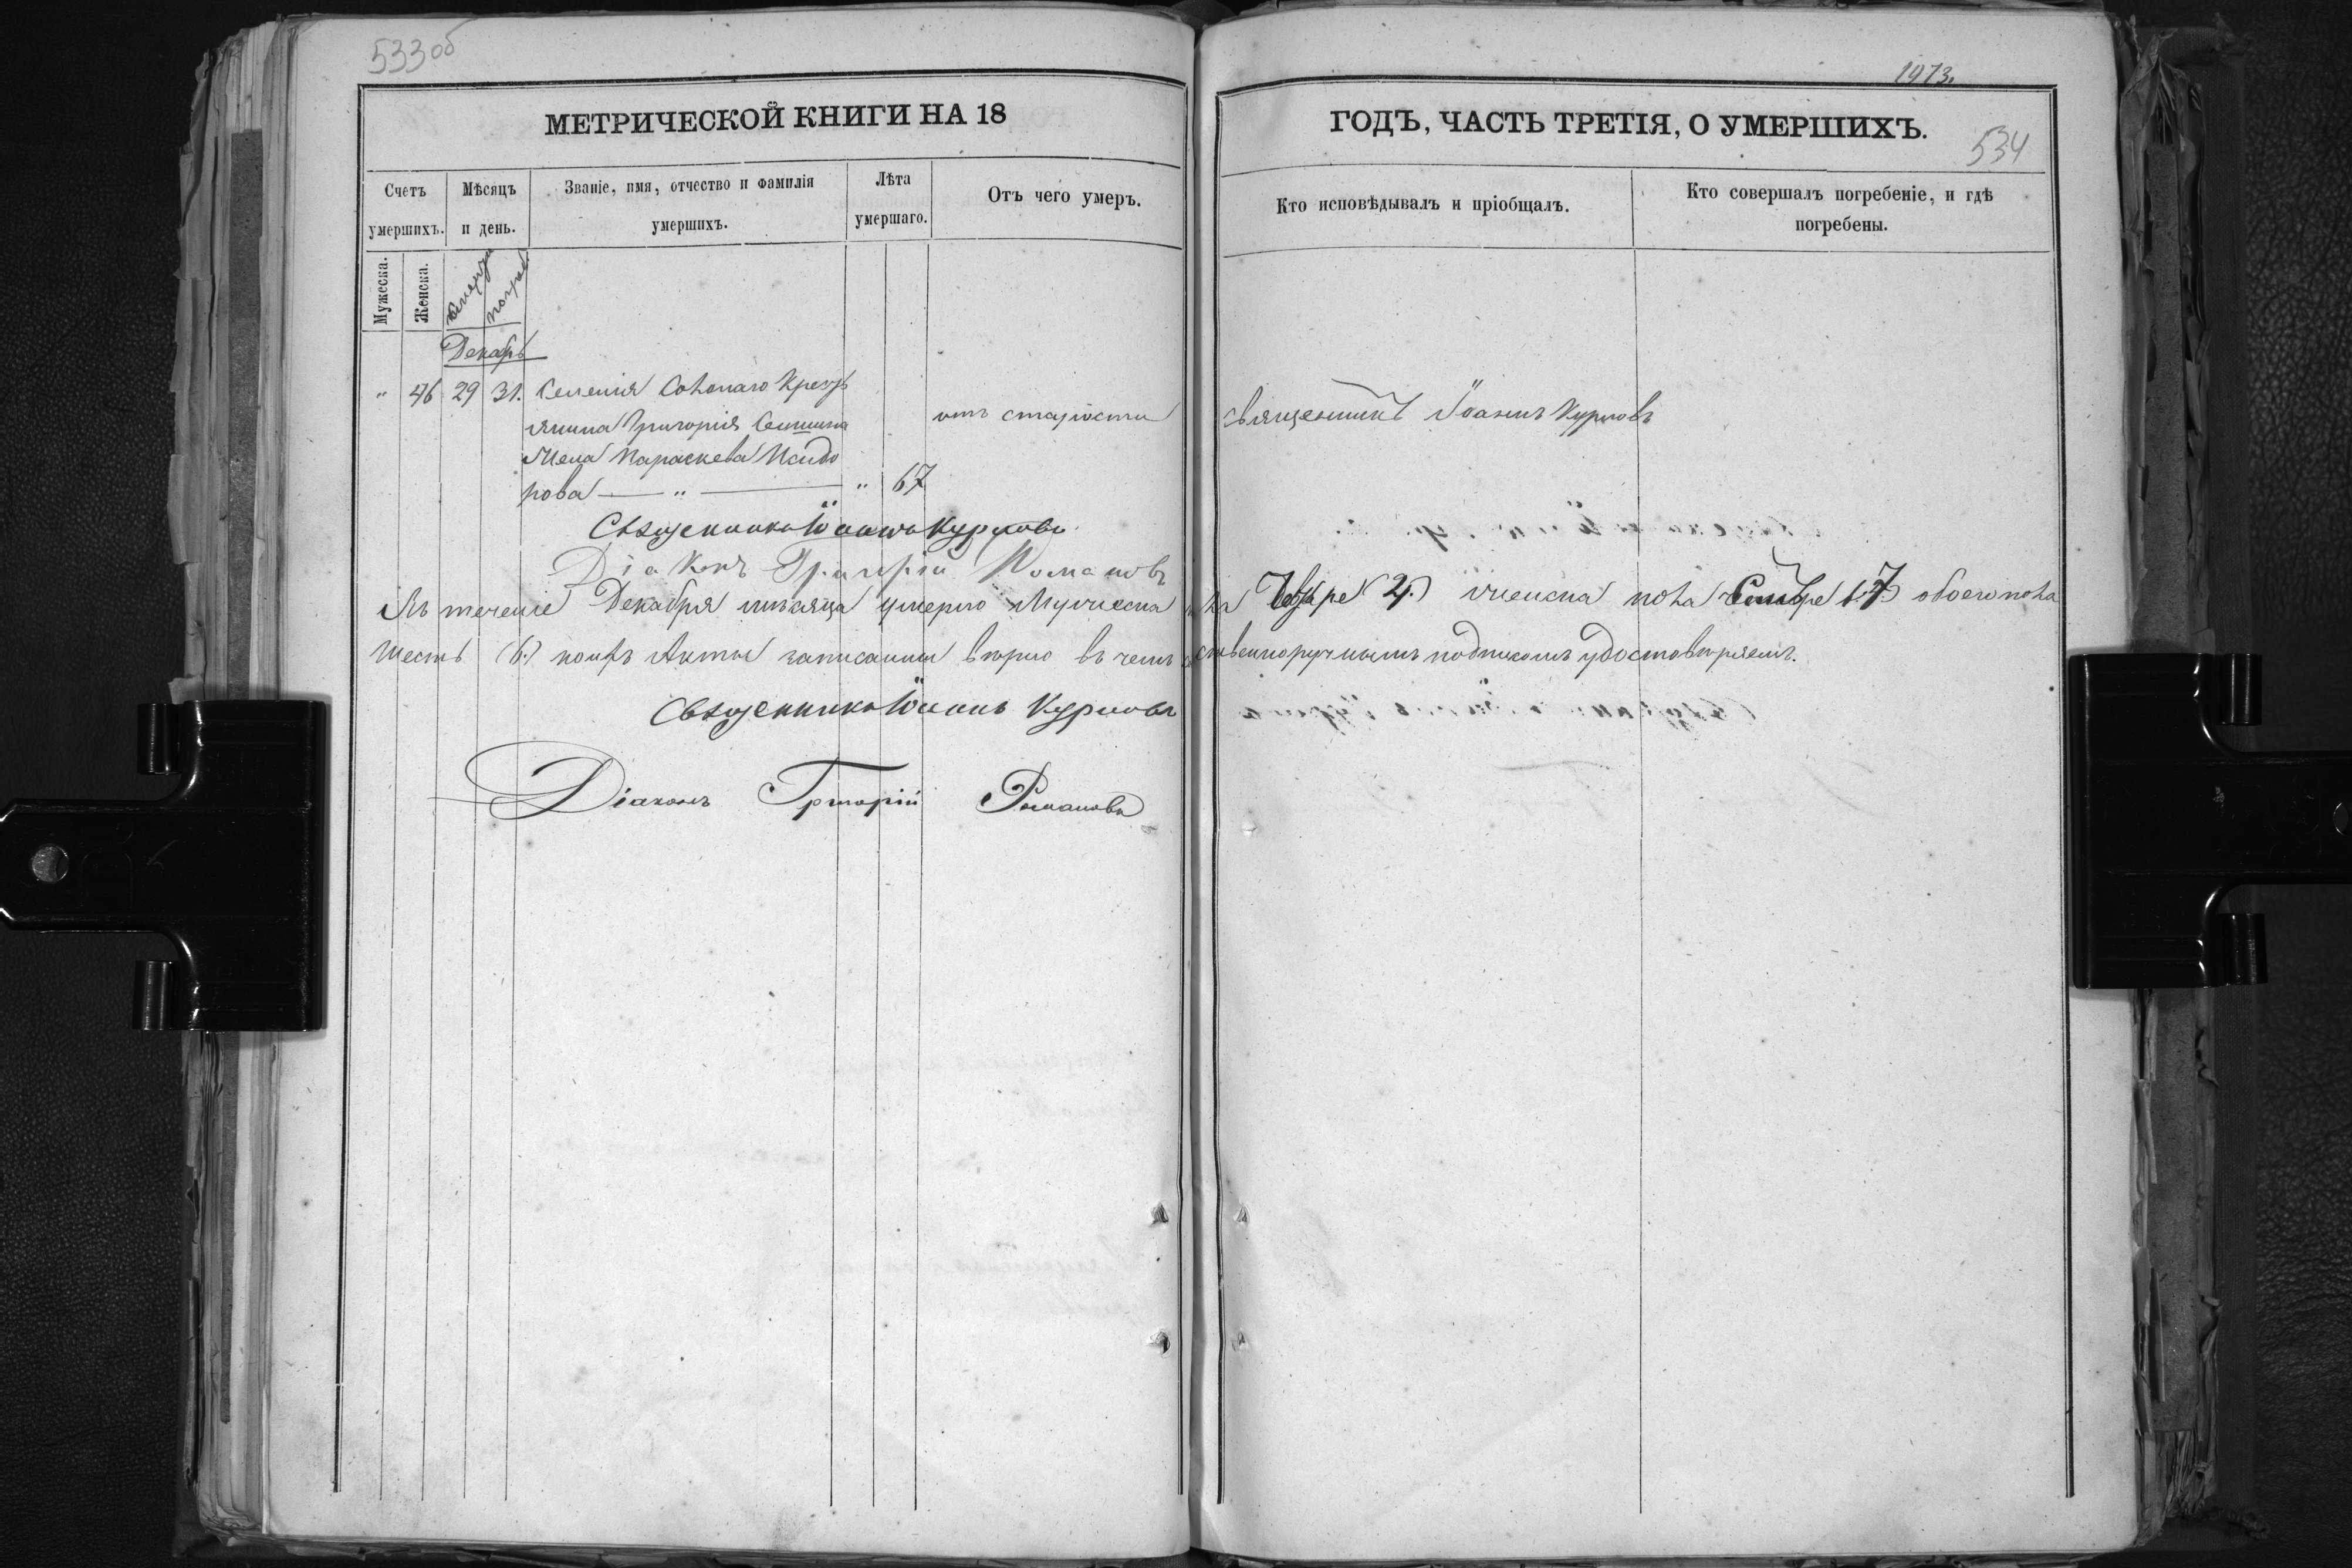 533 об
МЕТРИЧЕСКОЙ КНИГИ НА 18
Счетъ умершихъ.
Мѣсяцъ и день.
Званіе, имя, отчество и фамилія умершихъ.
Лѣта умершаго.
Отъ чего умеръ.
Мужеска.
Женска.
погреб.
Декабрь
" 46 29 31. Селенія Соколаго Кресть
янина Григорія
жена Параскева Исидо
рова — " — " 67
отъ старости
Священникъ Іоаннъ Курловъ
Діаконъ Григорій Романовъ
Въ теченіе Декабря мѣсяца умерло Мужеска
Шесть (6.) коихъ Акты записаны вѣрно въ чемъ
Священникъ Іоаннъ Курловъ
Діаконъ Григорій Романовъ
1973.
ГОДЪ, ЧАСТЬ ТРЕТІЯ, О УМЕРШИХЪ.
534
Кто исповѣдывалъ и пріобщалъ.
Кто совершалъ погребеніе, и гдѣ погребены.
Священникъ Іоаннъ Курловъ
женска пола обоего пола
ственноручнымъ подписомъ удостовѣряемъ.